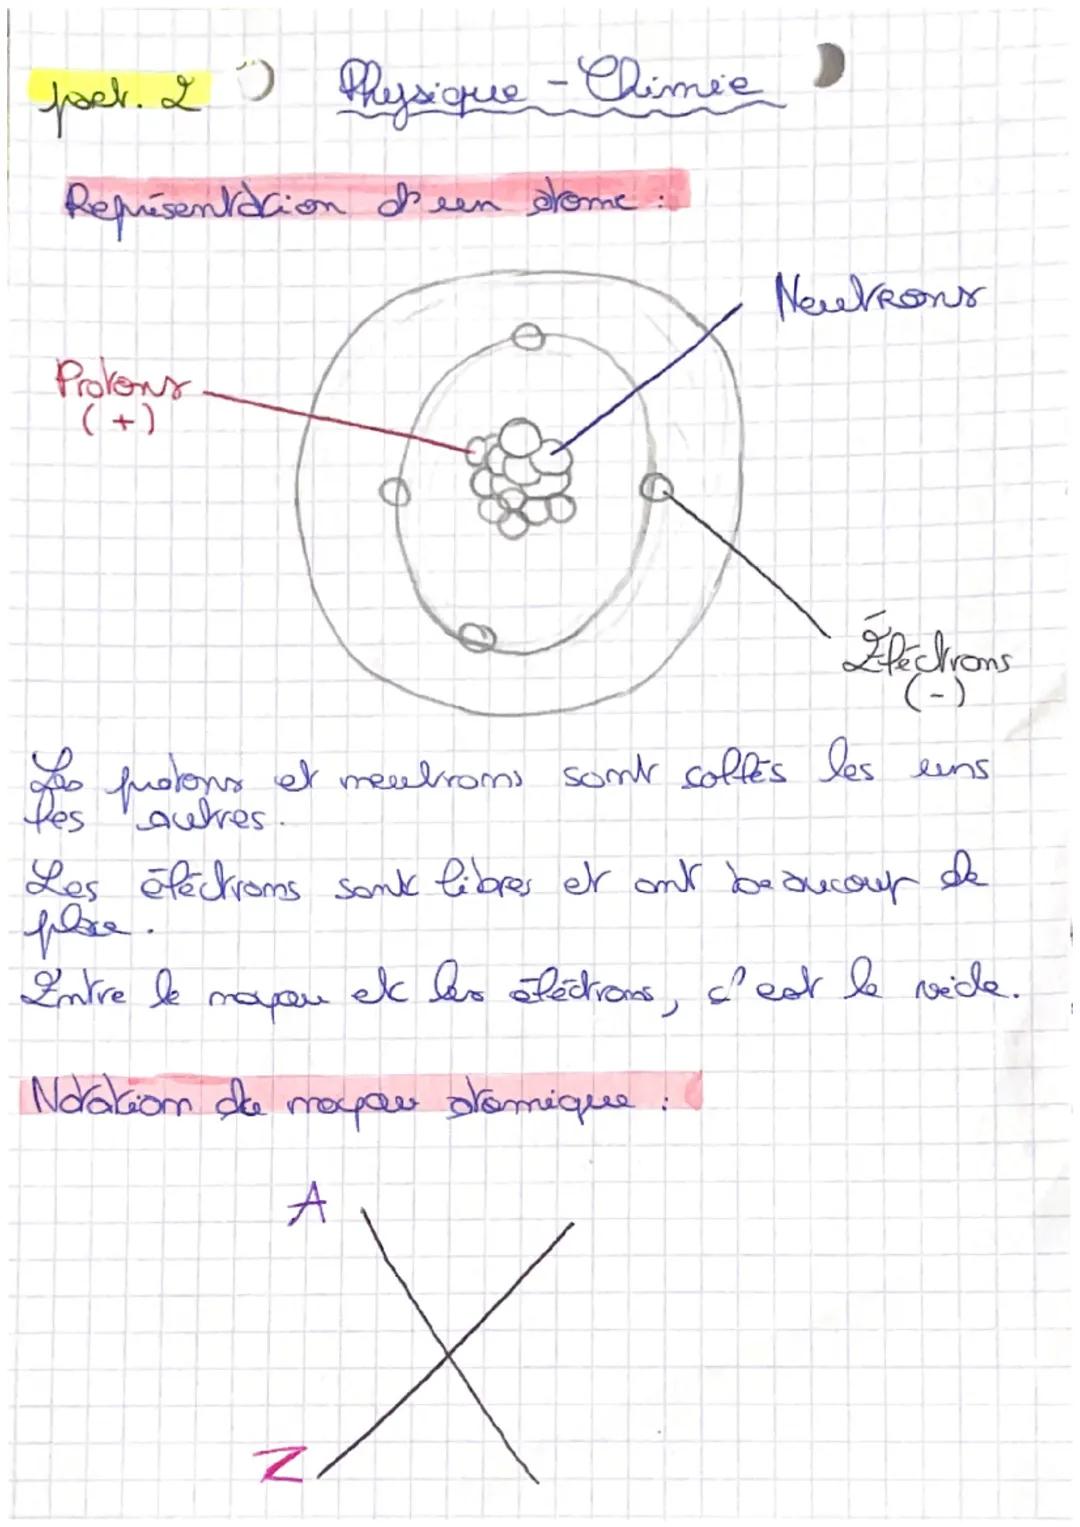 part. 2
Physique - Chimie
Représentation d'un atome :
Neutrons
Protons
(+)
Électrons
(-)
Les protons et neutrons sont collés les uns
les autres.
Les éléctrons sont libres et ont beaucoup de
place.
Entre le noyau et les éléctrons, c'est le vide.
Notation du noyau atomique :
A
X
Z